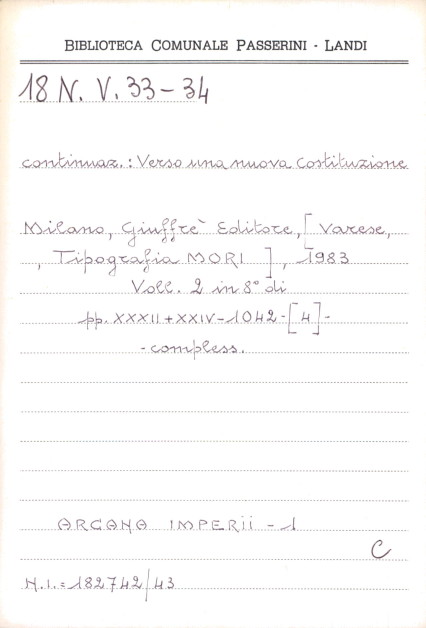 BIBLIOTECA COMUNALE PASSERINI - LANDI
18 N. V. 33-34
continuaz.: Verso una nuova Costituzione
Milano, Giuffrè Editore, [Varese,
, Tipografia MORI ], 1983
Voll. 2 in 8° di
pp. XXXII+XXIV-1042-[4]-
-compless.
ARCANA IMPERII - 1
C
N.I.=182742/43